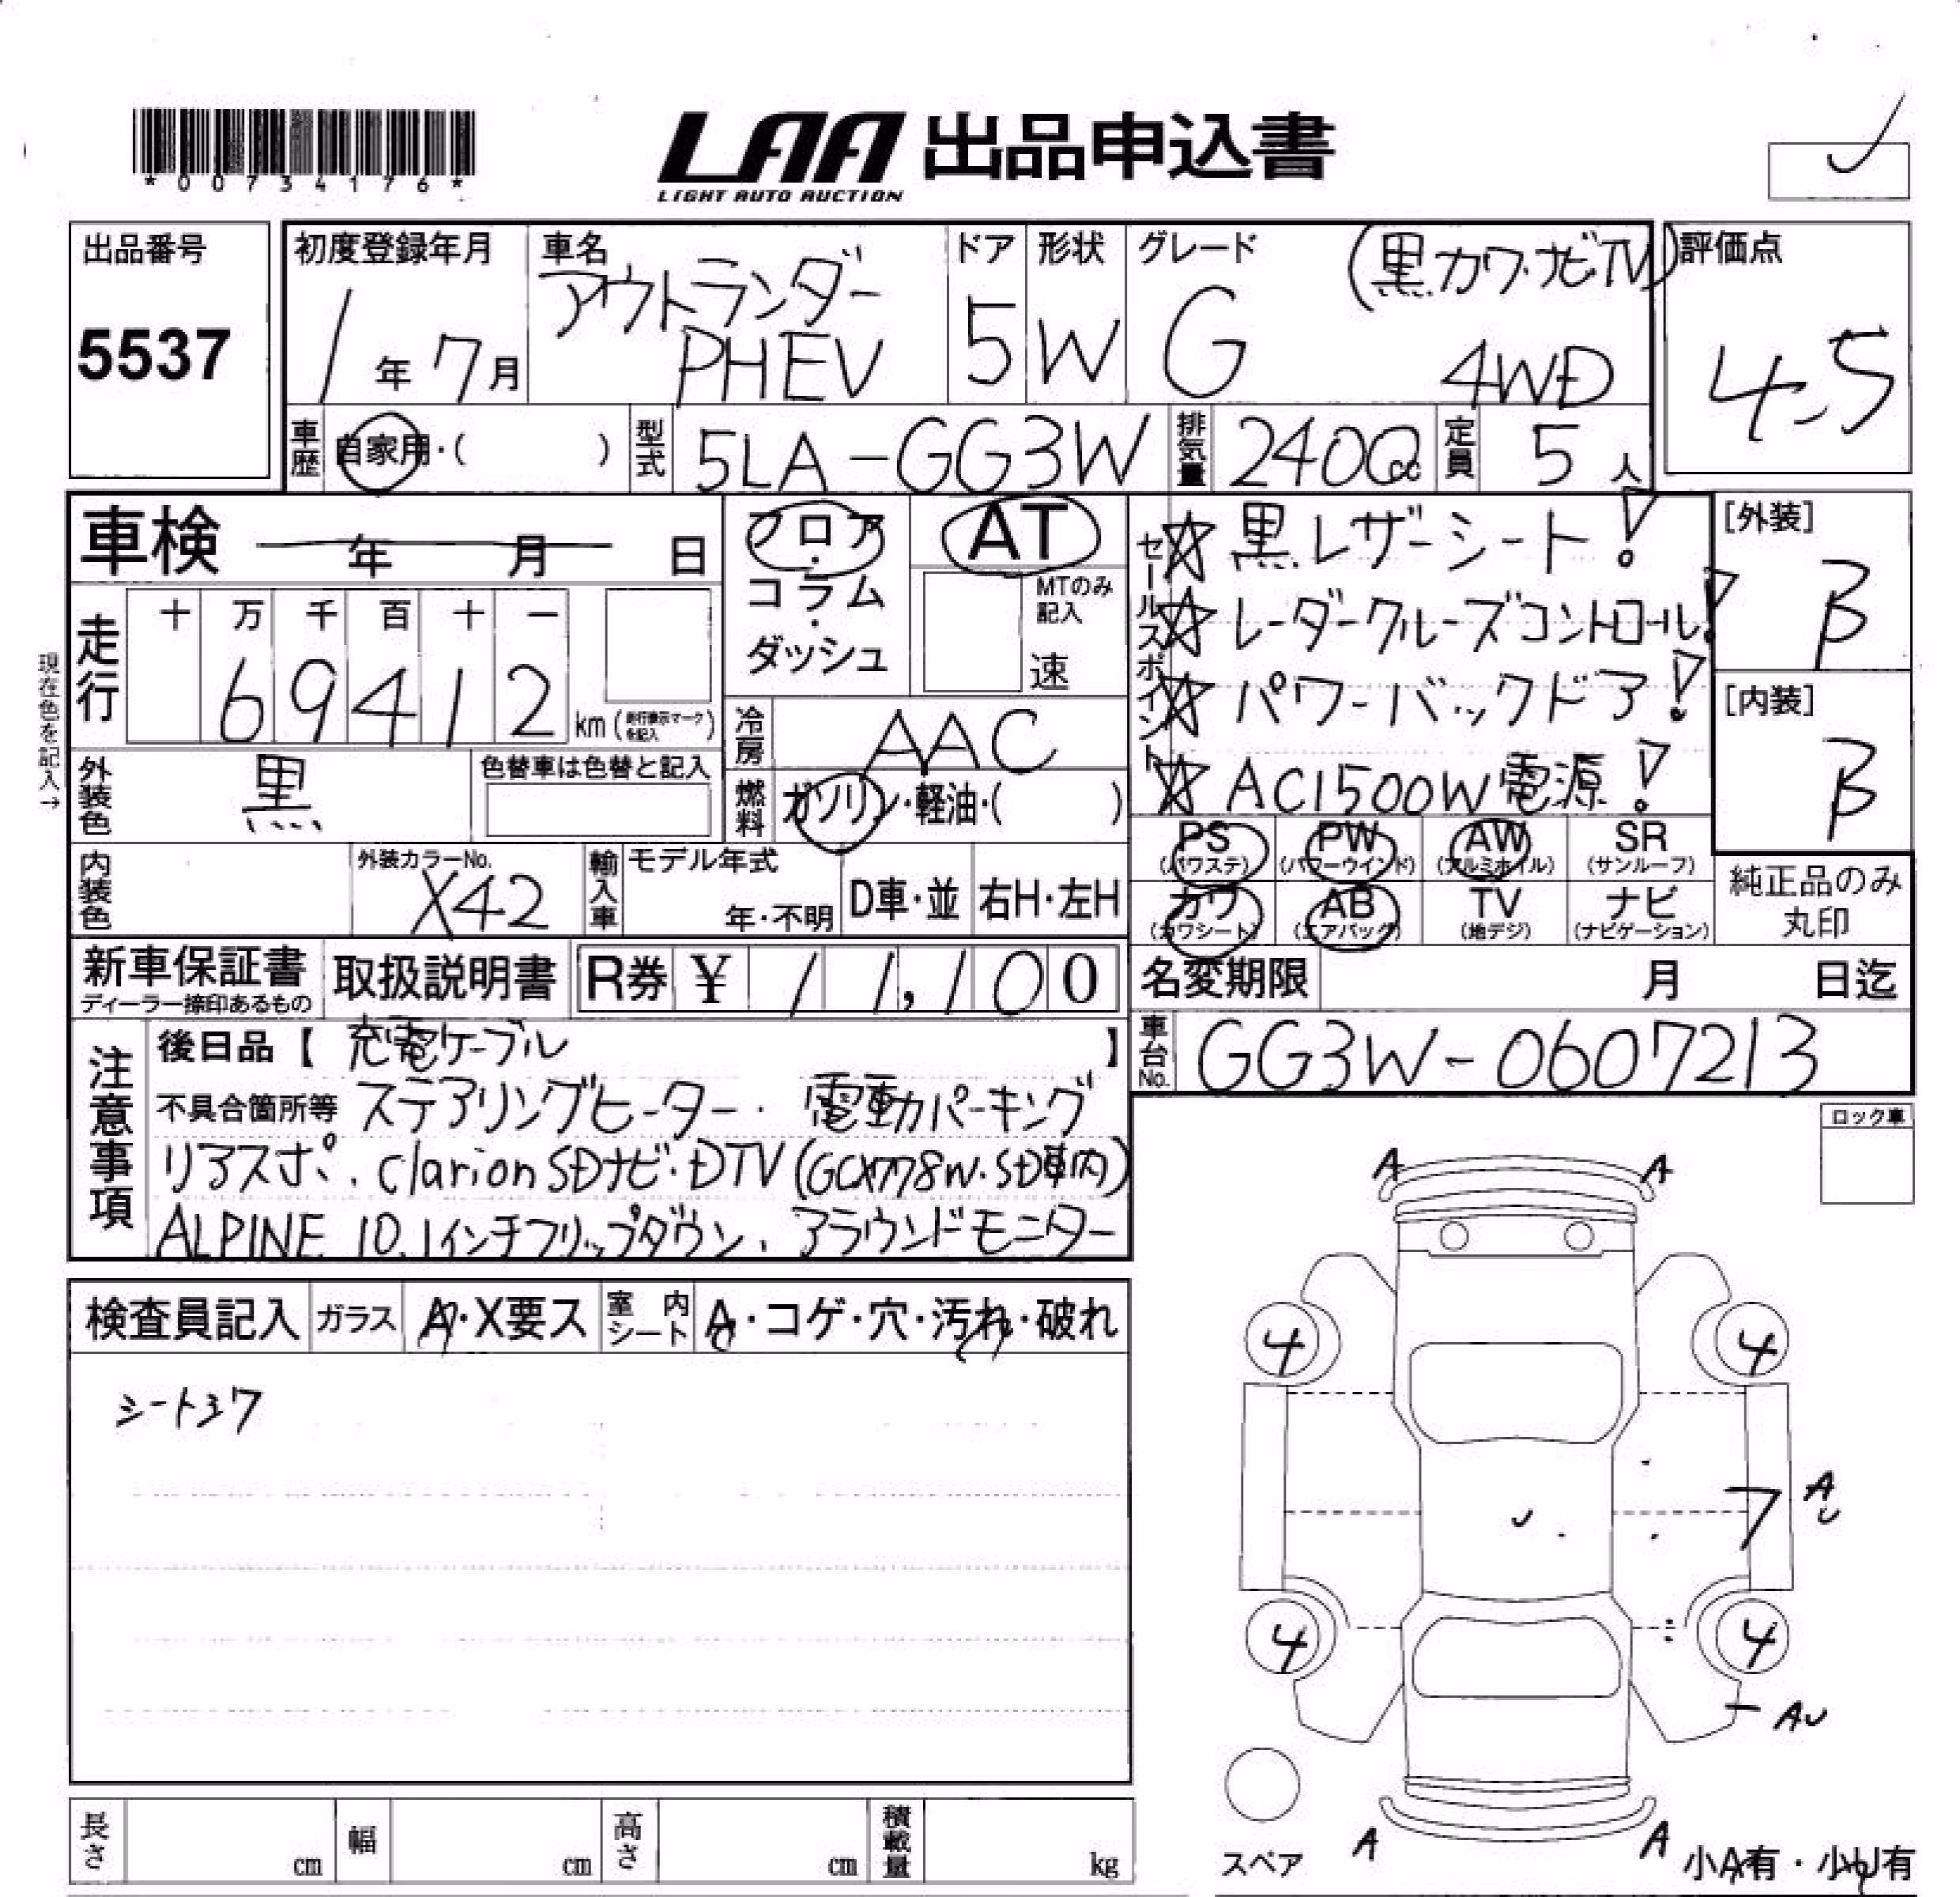 LAA 出品申込書
LIGHT AUTO AUCTION
*00734176*
出品番号
5537
初度登録年月
1年7月
車名
アウトランダー
PHEV
ドア
5
形状
W
グレード
(黒カワ・ナビTV)
G 4WD
評価点
4.5
車歴 自家用・( )
型式 5LA-GG3W
排気量 2400cc
定員 5人
車検 年 月 日
フロア・コラム・ダッシュ
AT
MTのみ記入
速
セールスポイント
☆黒レザーシート!
☆レーダークルーズコントロール!
☆パワーバックドア!
☆AC1500W電源!
[外装]
B
[内装]
B
現在色を記入→
走行
十 万 千 百 十 一
6 9 4 1 2
km(走行表示マークを記入)
冷房 AAC
外装色 黒
色替車は色替と記入
燃料 ガソリン・軽油・( )
PS (パワステ)
PW (パワーウインド)
AW (アルミホイル)
SR (サンルーフ)
カワ (カワシート)
AB (エアバッグ)
TV (地デジ)
ナビ (ナビゲーション)
純正品のみ
丸印
内装色
外装カラーNo.
X42
輸入車
モデル年式
年・不明
D車・並
右H・左H
新車保証書
ディーラー捺印あるもの
取扱説明書
R券 ¥ 11,100
名変期限 月 日迄
車台No. GG3W-0607213
注意事項
後日品【 充電ケーブル 】
不具合箇所等 ステアリングヒーター. 電動パーキング
リアスポ. clarion SDナビ・DTV (GCX778W.SD車内)
ALPINE 10.1インチフリップダウン、アラウンドモニター
ロック車
検査員記入
ガラス A・X要ス
室内シート A・コゲ・穴・汚れ・破れ
A A
4 4
7 A U
4 4
AU
A A
スペア
小A有・小U有
長さ cm
幅 cm
高さ cm
積載量 kg